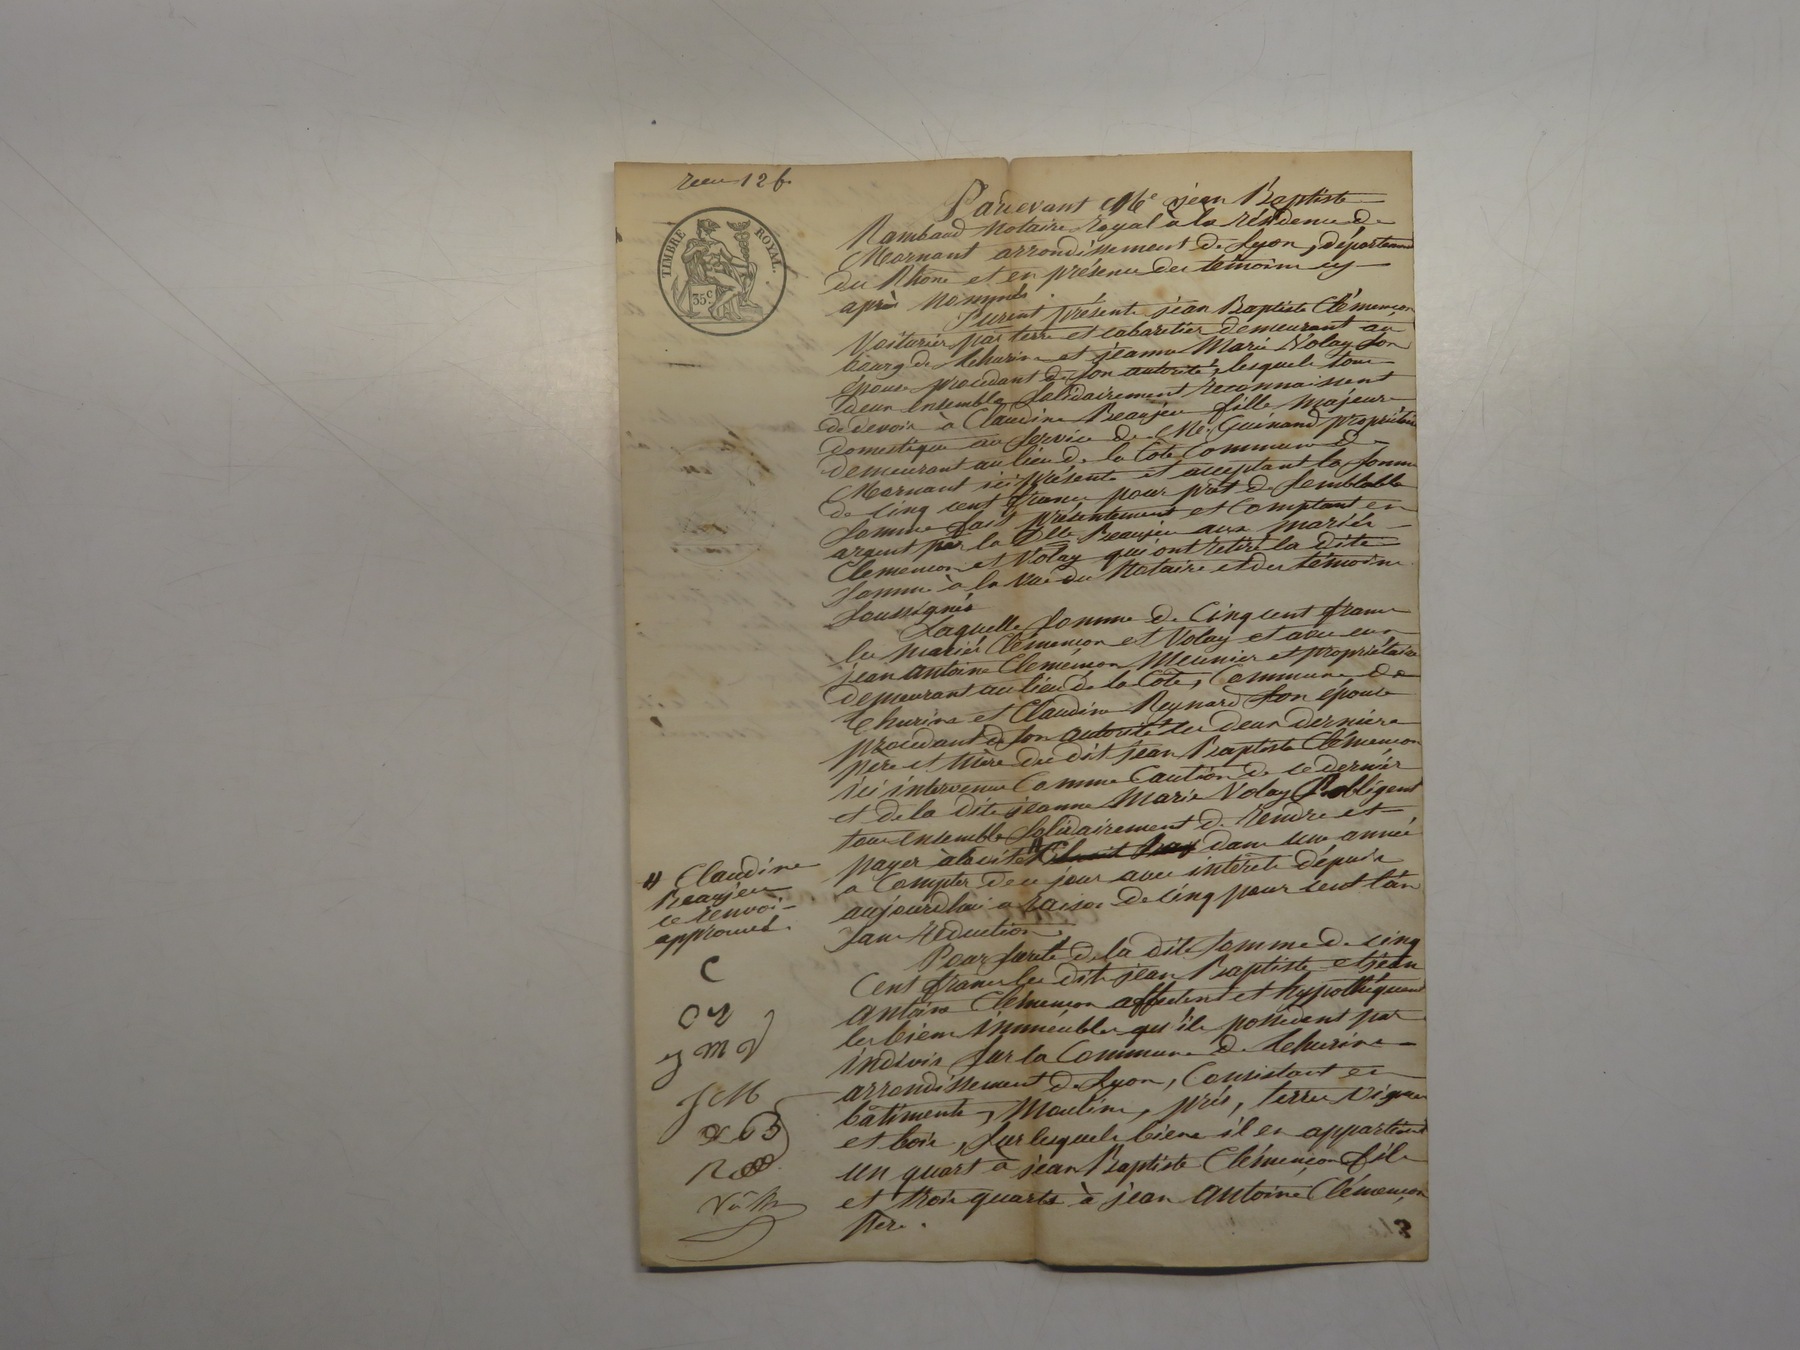 reçu 12 f.
TIMBRE ROYAL.
35 c
Pardevant Me jean Baptiste
Rambaud Notaire Royal à la résidence de
Mornant arrondissement de Lyon, départemt
du Rhône et en présence des témoins cy
après nommés.
Furent présents jean Baptiste Clémençon
Voiturier par terre et cabaretier demeurant au
bourg de Thurins et jeanne Marie Volay son
épouse procédant de son autorité, lesquels tous
deux ensemble solidairement reconnaissent
de devoir à Claudine Beaujeu fille majeure
domestique au service de Mr. Guinand propriétaire
demeurant au lieu de la Cote Commune de
Mornant ici présente et acceptant la somme
de cinq cent francs pour prêt de semblable
somme fait présentement et comptant en
argent par la dlle Beaujeu aux mariés
Clemençon et Volay qui ont retiré la dite
somme à la vue du Notaire et des témoins
soussignés
Laquelle somme de Cinq cent francs
les mariés Clémençon et Volay et avec eux
jean antoine Clemençon Meunier et propriétaire
demeurant au lieu de la Cote, Commune de
Thurins et Claudine Reynard son épouse
procédant de son autorité les deux derniers
père et mère du dit jean Baptiste Clémençon
ici intervenus Comme Caution de ce dernier
et de la dite jeanne Marie Volay s'obligent
tous ensemble solidairement de rendre et
payer à la dite " dans une année
a Compter de ce jour avec intérêts dépuis
aujourdhui a raison de cinq pour cent l'an
sans réduction.
" Claudine
Beaujeu
ce renvoi
approuvé.
Pour sureté de la dite somme de cinq
Cent francs les dits jean Baptiste et jean
antoine Clémençon affectent et hypothéquent
les biens immeubles qu'ils possèdent par
indivis sur la Commune de Thurins
arrondissement de Lyon, Consistant en
bâtiments, Moulins, prés, terres vignes
et bois, sur lesquels biens il en appartient
un quart à jean Baptiste Clémençon fils
et trois quarts à jean antoine Clémençon
père.
C
j m V